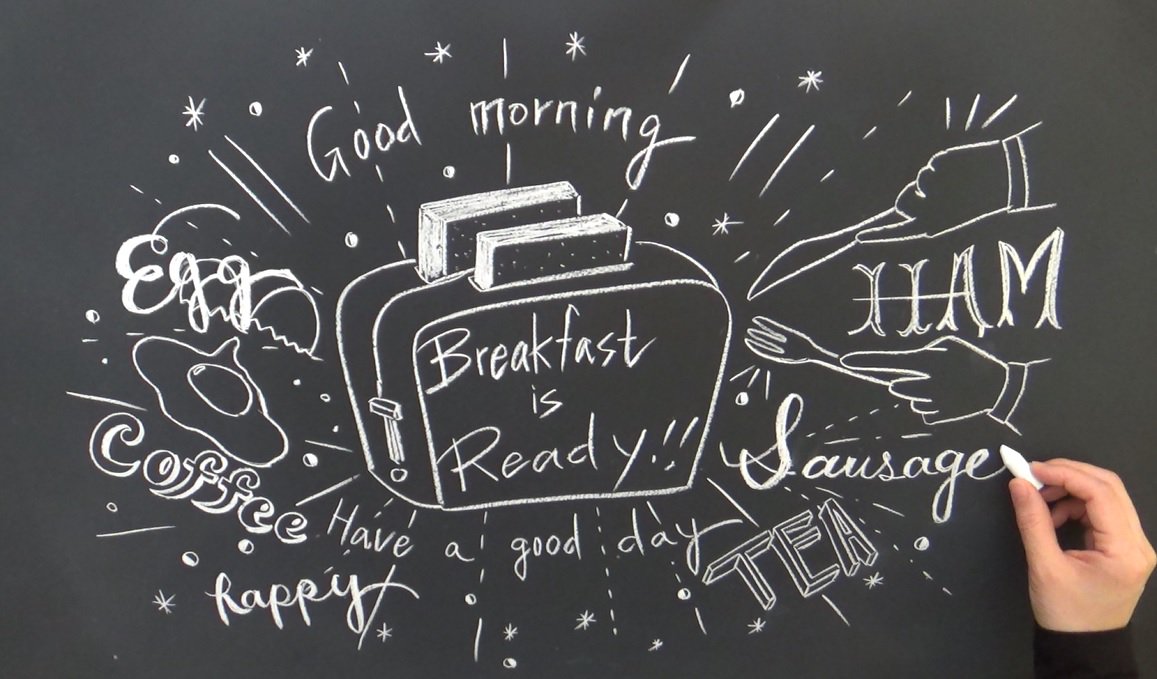 Good morning
Egg
HAM
Breakfast
is
Ready!!
Coffee
Sausage
Have a good day
TEA
happy